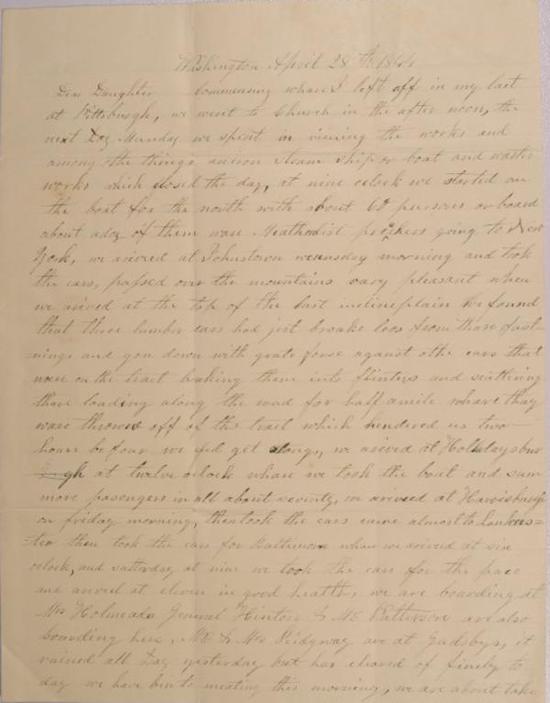 Washington April 28th
Dear Daughter Commencing where I left off in my last
at Pittsburgh, we went to Church in the after noon, the
next Day Munday we spent in viewing the works and
among the things an iron steam ship or boat and water
works which closed the day, at nine oclock we started on
the boat for the north with about 60 persons on board
about a doz of them ware Meathodist going to New
York, we arived at Johnstown morning and took
the cars, passed over the mountains vary pleasant when
we arived at the top of the last inclineplain we found
that three lumber cars had just broake loos from thare fast-
nings and gon down with grate forse against othe cars that
ware on the tract braking them into flinters and scattering
thare loading along the road for half a mile whare they
ware throwed off of the tract which hendered us two
hours before we get along, we arived at Hollidaysbur
gh at twelve oclock whare we took the boat and sum
more pasengers in all about seventy, we arived at Harrisburgh
on friday morning, then took the cars came almost to Lankers=
=ter then took the cars for Baltimore whare we arived at six
oclock, and satterday at nine we took the cars for this place
and arived at eleven in good health, we are boarding at
Mrs General & Mc Patterson are also
boarding here, & Mrs Ridgway are at Gadsbys, it
rained all Day yesterday but has cleared of finely to
day we have ben to meating this morning, we are about take